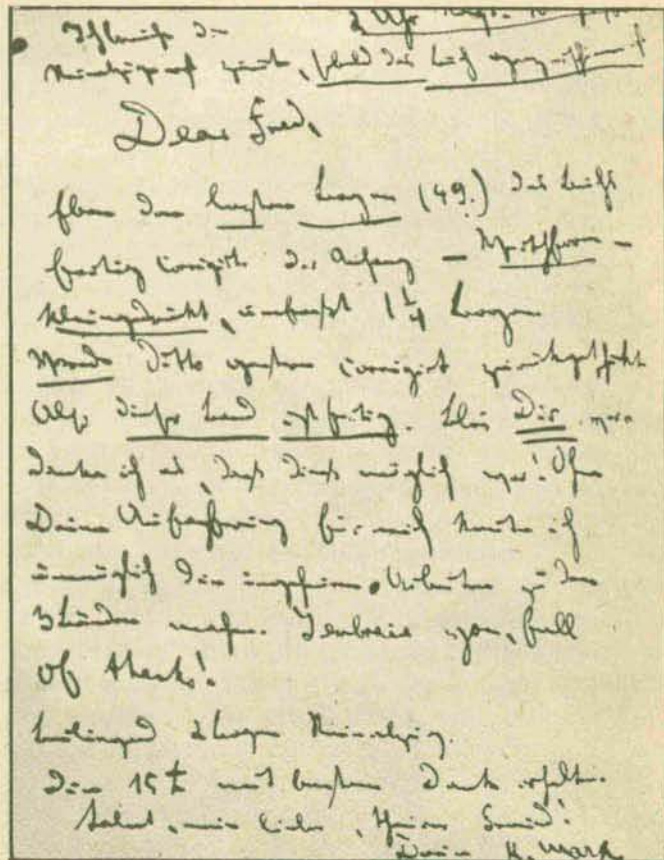 2 Uhr Nacht. 16
die
zurück, sobald das Buch ganz
Dear Fred,
Eben den letzten Bogen (49.) des Buchs
fertig corrigirt. Der Anhang – Werthform –
kleingedruckt, umfaßt 1 1/4 Bogen
Vorrede ditto gestern corrigirt zurückgeschickt
Also dieser Band ist fertig. Blos Dir ver-
danke ich es, daß dieß möglich war! Ohne
Deine Aufopferung für mich konnte ich
unmöglich die ungeheuren Arbeiten zu den
3 Bänden machen. I embrace you, full
of thanks!
Beiliegend 2 Bogen Reinabzug.
Die 15 £ mit bestem Dank erhalten.
Salut, mein lieber, theurer Freund!
Dein K. Marx